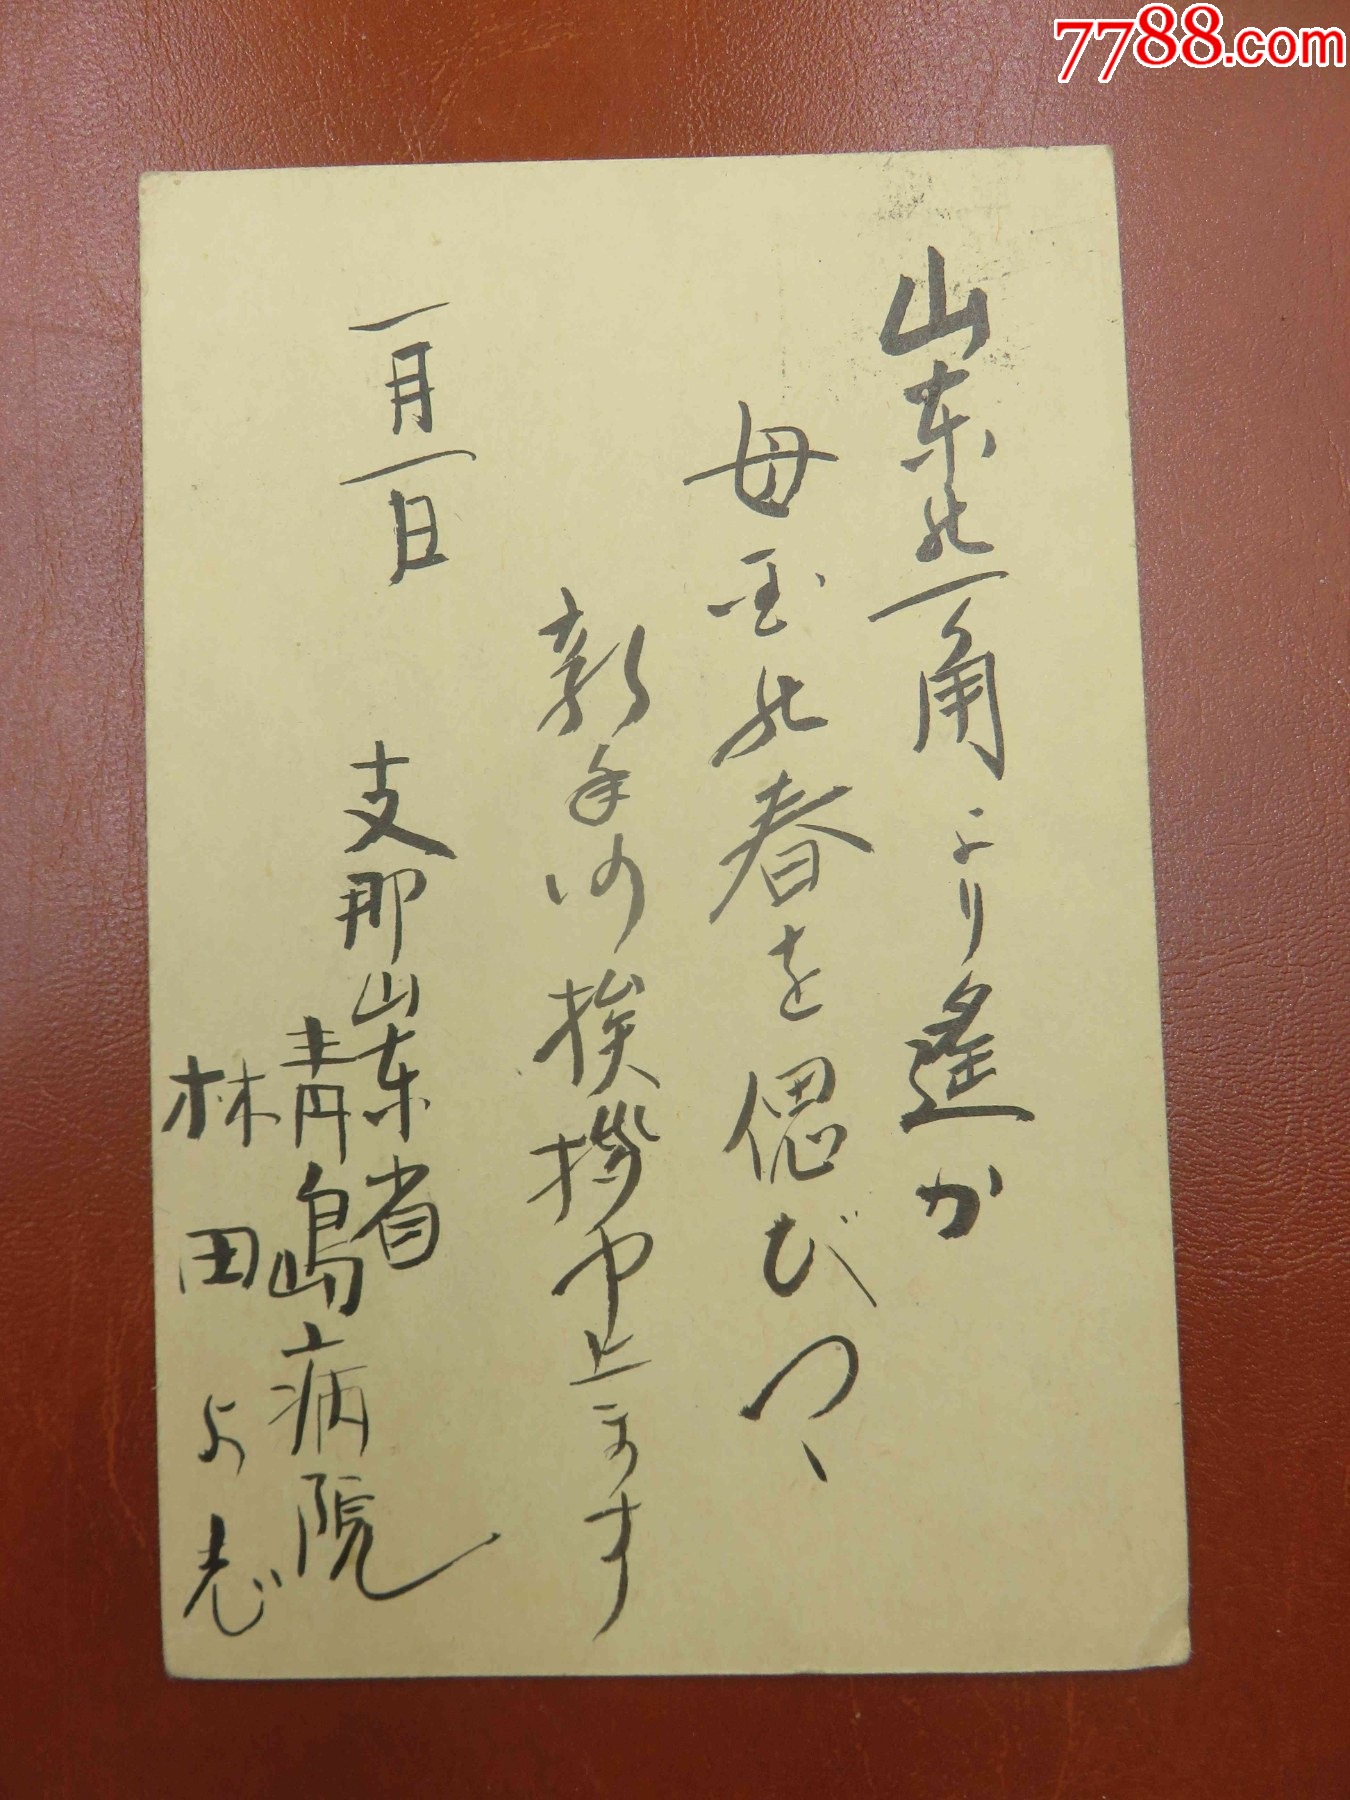 7788.com
山東の一角より遙か
母国の春を偲びつゝ
新年の御挨拶申上ます
一月一日
支那山東省
青島病院
林田よ志